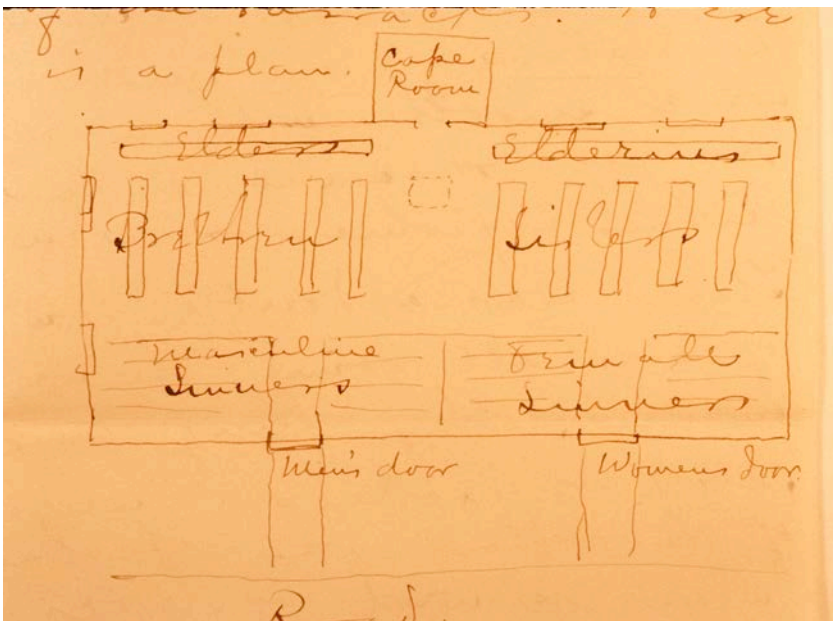 of the barracks. Here
is a plan.
Cape
Room
Elders
Elderins
Brethren
Sisters
Masculine
Sinners
Female
Sinners
Men's door
Womens door
Road